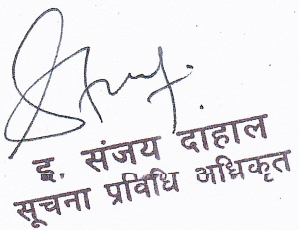 इ. संजय दाहाल
सूचना प्रविधि अधिकृत